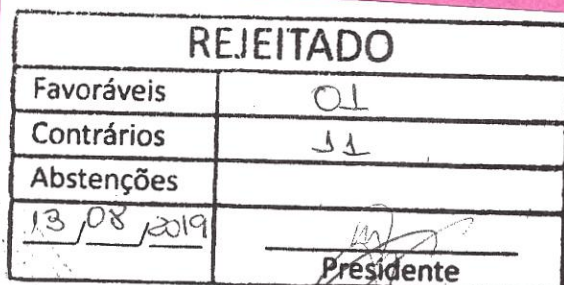 REJEITADO
Favoráveis 01
Contrários 11
Abstenções
13/08/2019
Presidente